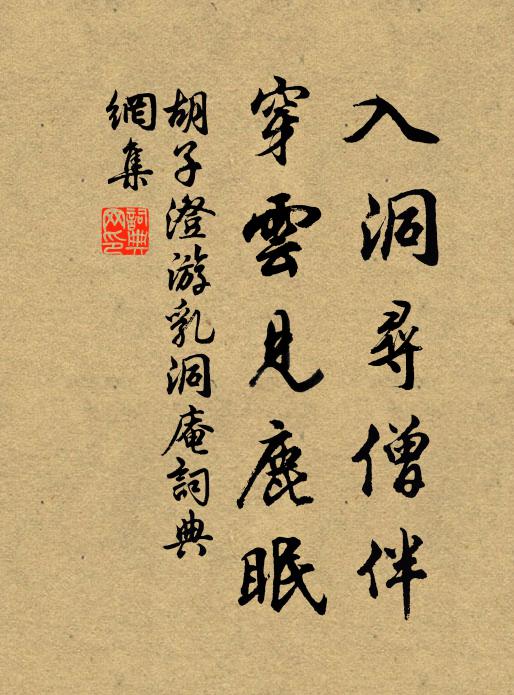 入洞尋僧伴
穿雲見鹿眠
胡子澄游乳洞庵詞典
網集
詞典
网印